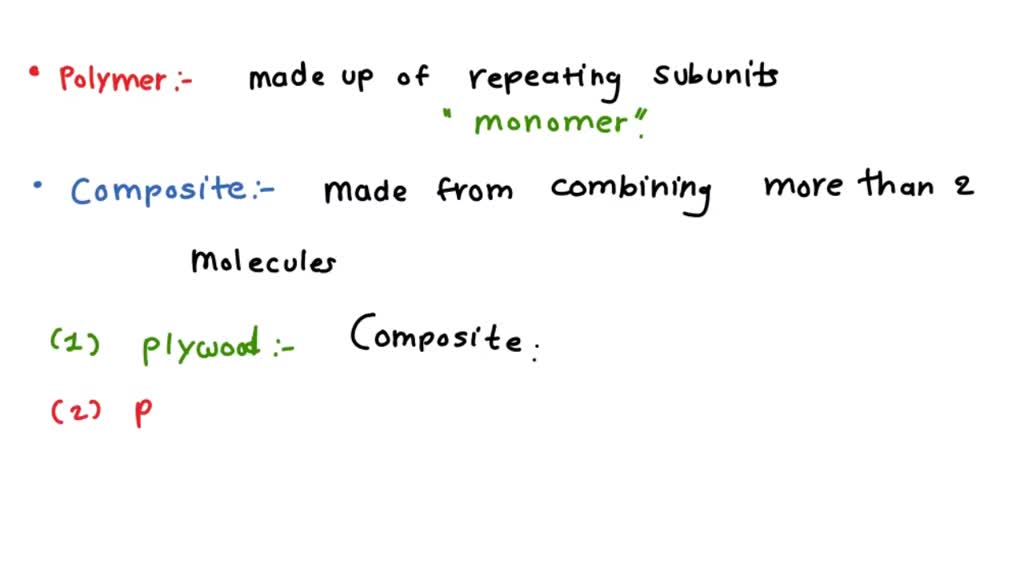 • Polymer:- made up of repeating subunits
"monomer".
• Composite:- made from combining more than 2
molecules
(1) plywood:- Composite.
(2) p